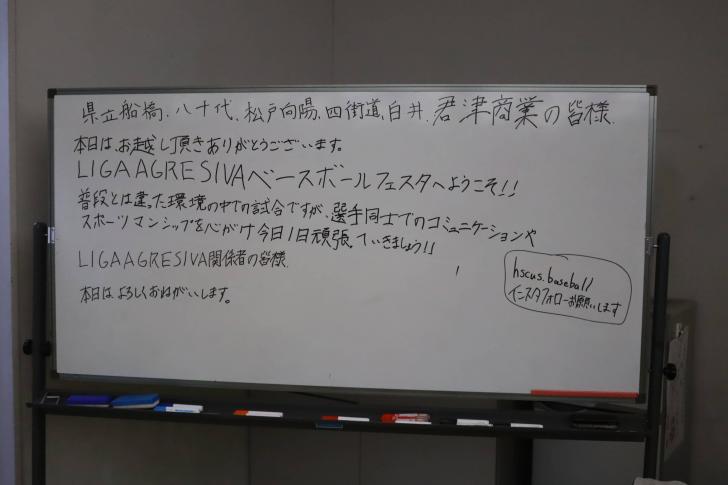 県立船橋、八千代、松戸向陽、四街道、白井、君津商業の皆様
本日は、お越し頂きありがとうございます。
LIGA AGRESIVAベースボールフェスタへようこそ!!
普段とは違った環境の中での試合ですが、選手同士でのコミュニケーションや
スポーツマンシップを心がけ今日1日頑張っていきましょう!!
LIGA AGRESIVA関係者の皆様
本日はよろしくおねがいします。
hscus.baseball
インスタフォローお願いします